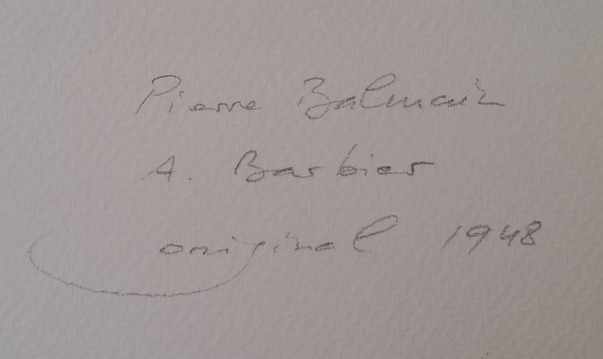 Pierre Balmain
A. Barbier
original 1948